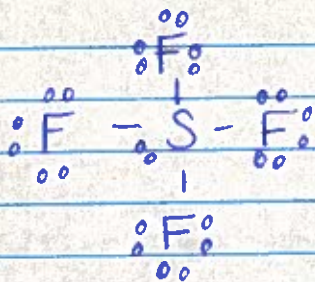 F
F - S - F
F